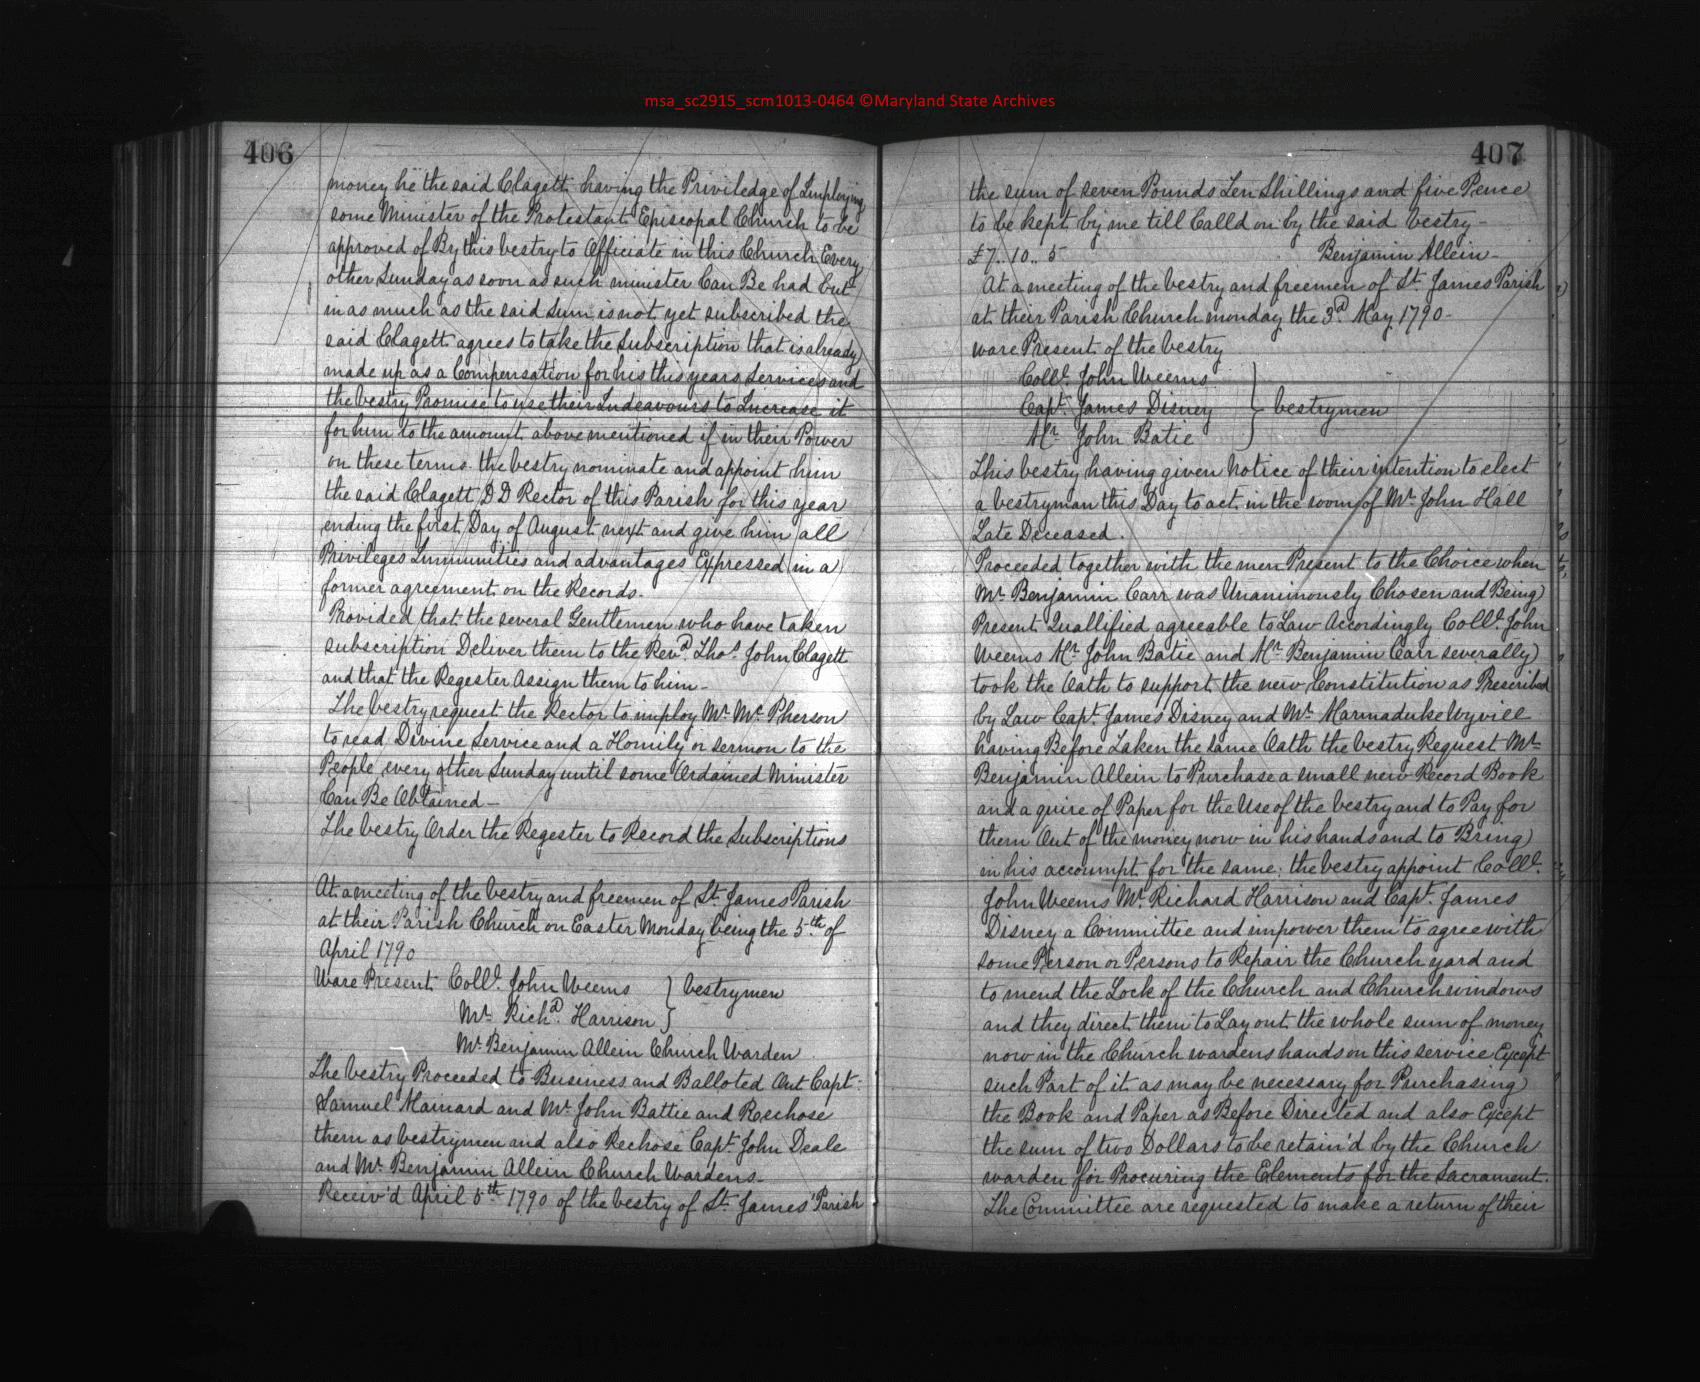 msa_sc2915_scm1013-0464 ©Maryland State Archives
406
money he the said Clagett having the Priviledge of Imploying
some Minister of the Protestant Episcopal Church to be
approved of By this vestry to Officiate in this Church Every
other Sunday as soon as such minister Can Be had but
in as much as the said Sum is not yet subscribed the
said Clagett agrees to take the Subscription that is already
made up as a Compensation for his this years Services and
the vestry Promise to use their Indeavours to Increase it
for him to the amount above mentioned if in their Power
on these terms the vestry nominate and appoint him
the said Clagett D D Rector of this Parish for this year
ending the first Day of August next and give him all
Privileges Immunities and advantages Expressed in a
former agreement on the Records.
Provided that the several Gentlemen who have taken
subscription Deliver them to the Revd. Thos. John Clagett
and that the Regester Assign them to him -
The vestry request the Rector to imploy Mr. Mc Pherson
to read Divine Service and a Homily or sermon to the
People every other Sunday until some Ordained Minister
Can Be Obtained -
The vestry Order the Regester to Record the Subscriptions
At a meeting of the vestry and freemen of St. James Parish
at their Parish Church on Easter Monday being the 5th of
April 1790
Ware Present Coll. John Weems } vestrymen
Mr. Richd. Harrison }
Mr. Benjamin Allein Church Warden
The vestry Proceeded to Business and Balloted Out Capt.
Samuel Mainard and Mr. John Battie and Rechose
them as vestrymen and also Rechose Capt. John Deale
and Mr. Benjamin Allein Church Wardens -
Receiv'd April 5th 1790 of the vestry of St. James' Parish
407
the sum of seven Pounds Ten Shillings and five Pence
to be kept by me till Calld on by the said vestry -
£7..10..5 Benjamin Allein -
At a meeting of the vestry and freemen of St. James Parish
at their Parish Church monday the 3d May 1790 -
ware Present of the vestry
Coll. John Weems }
Capt. James Disney } vestrymen
Mr. John Batie }
This vestry having given Notice of their intention to elect
a vestryman this Day to act in the room of Mr. John Hall
Late Deceased.
Proceeded together with the men Present to the Choice when
Mr. Benjamin Carr was Unanimously Chosen and Being
Present Quallified agreeable to Law Accordingly Coll. John
Weems Mr. John Batie and Mr. Benjamin Carr severally
took the Oath to support the new Constitution as Prescribed
by Law Capt. James Disney and Mr. Marmaduke Wyvill
having Before Taken the same Oath the vestry Request Mr.
Benjamin Allein to Purchase a small new Record Book
and a quire of Paper for the Use of the vestry and to Pay for
them Out of the money now in his hands and to Bring
in his accompt for the same; the vestry appoint Coll.
John Weems Mr. Richard Harrison and Capt. James
Disney a Committee and impower them to agree with
some Person or Persons to Repair the Church yard and
to mend the Lock of the Church and Church windows
and they direct them to Lay out the whole sum of money
now in the Church wardens hands on this service Except
such Part of it as may be necessary for Purchasing
the Book and Paper as Before Directed and also Except
the sum of two Dollars to be retain'd by the Church
warden for Procuring the Elements for the Sacrament.
The Committee are requested to make a return of their